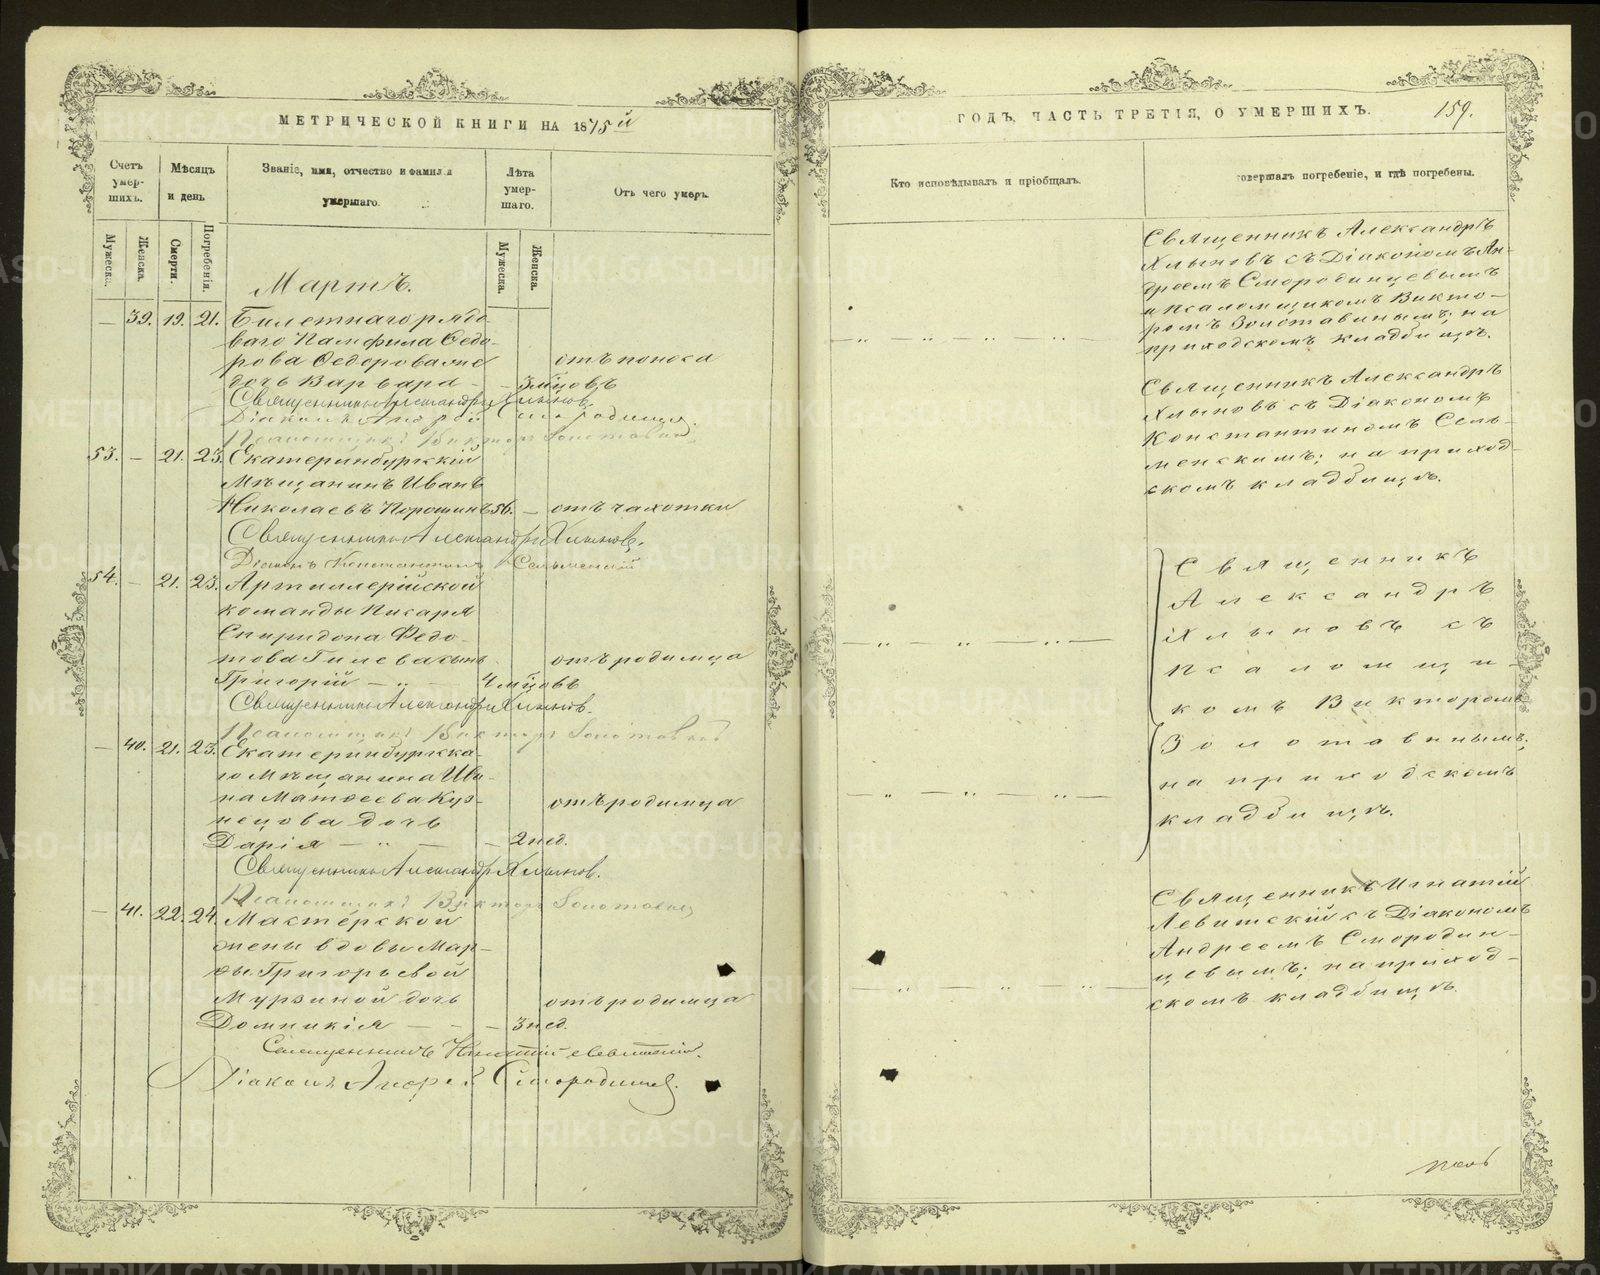 МЕТРИЧЕСКОЙ КНИГИ НА 1875й
Счетъ умер- шихъ.
Мѣсяцъ и день
Званіе, имя, отчество и фамилія умершаго.
Лѣта умер- шаго.
Отъ чего умеръ.
Мужеска.
Женска.
Смерти.
Погребенія.
Мужеска.
Женска.
Мартъ.
— 39. 19. 21. Билетнаго рядо-
ваго Памфила Ѳедо-
рова Ѳедорова же отъ поноса
дочь Варвара — — 3 мѣсцовъ
Священникъ Александръ Хлыновъ.
Діаконъ Андрей Смородинцевъ.
Псаломщикъ Викторъ Золотавинъ
53. — 21. 23. Екатеринбургскій
Мѣщанинъ Иванъ
Николаевъ Порошинъ 56. — отъ чахотки
Священникъ Александръ Хлыновъ.
Діаконъ Константинъ Сельменскій
54. — 21. 23. Артиллерійской
команды Писаря
Спиридона Ѳедо-
това Гилева сынъ отъ родимца
Григорій — „ — 4 мѣсцовъ
Священникъ Александръ Хлыновъ.
Псаломщикъ Викторъ Золотавинъ
— 40. 21. 23. Екатеринбургска-
го Мѣщанина Ива-
на Матѳеева Куз- отъ родимца
нецова дочь
Дарія — „ — — 2 нед.
Священникъ Александръ Хлыновъ.
Псаломщикъ Викторъ Золотавинъ
— 41. 22. 24. Мастерской
жены вдовы Мар-
ѳы Григорьевой
Мурзиной дочь отъ родимца
Домникія — — — 3 нед.
Священникъ Игнатій Левитскій.
Діаконъ Андрей Смородинцевъ.
ГОДЪ, ЧАСТЬ ТРЕТІЯ, О УМЕРШИХЪ. 159.
Кто исповѣдывалъ и пріобщалъ.
совершалъ погребеніе, и гдѣ погребены.
Священникъ Александръ
Хлыновъ съ Діакономъ Ан-
дреемъ Смородинцевымъ
и псаломщикомъ Викто-
ромъ Золотавинымъ; на
приходскомъ кладбищѣ.
— „ — „ — „ —
Священникъ Александръ
Хлыновъ съ Діакономъ
Константиномъ Сель-
менскимъ; на приход-
скомъ кладбищѣ.
Священникъ
Александръ
Хлыновъ съ
Псаломщи-
комъ Викторомъ
Золотавинымъ;
на приходскомъ
кладбищѣ.
— „ — „ — „ —
— „ — „ — „ —
Священникъ Игнатій
Левитскій съ Діакономъ
Андреемъ Смородин-
цевымъ; на приход-
скомъ кладбищѣ.
— „ — „ — „ —
METRIKI.GASO-URAL.RU